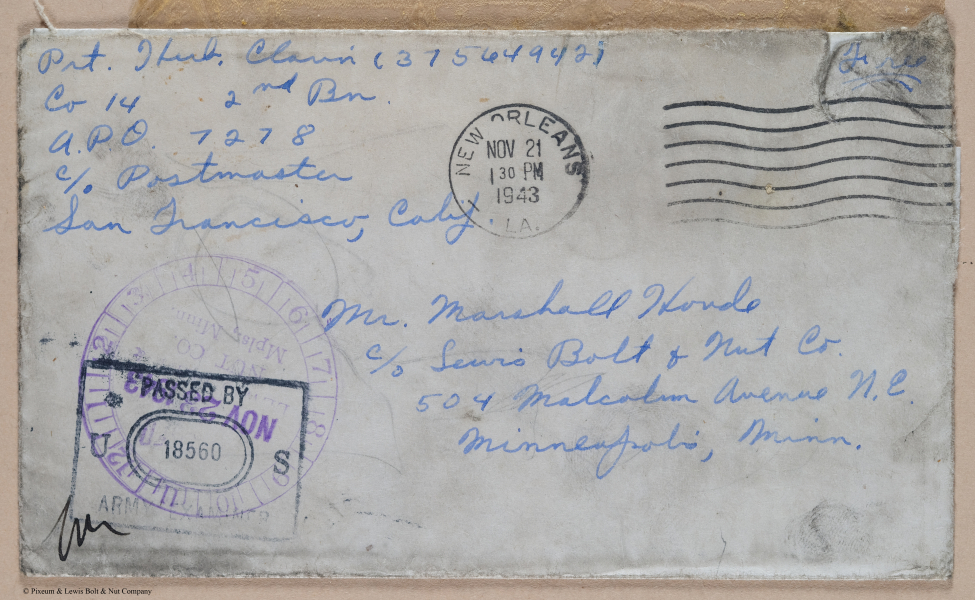 Pvt. Herb. Clavin (37564942)
Co 14 2nd Bn.
A.P.O. 7278
c/o Postmaster
San Francisco, Calif.
Free
NEW ORLEANS
NOV 21
1 30 PM
1943
LA.
Mr. Marshall Houde
c/o Lewis Bolt & Nut Co.
504 Malcolm Avenue N.E.
Minneapolis, Minn.
1 2 3 4 5 6 7 8 9 10 11 12
NUT CO.
Mpls., Minn.
NOV
PASSED BY
U 18560 S
ARMY EXAMINER
© Pixeum & Lewis Bolt & Nut Company